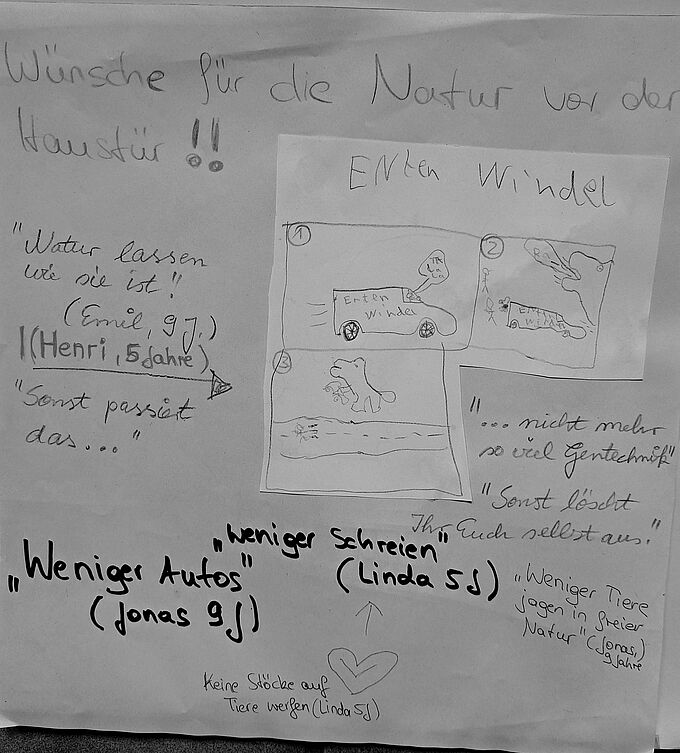 Wünsche für die Natur vor der
Haustür !!
ENten Windel
"Natur lassen
wie sie ist!"
(Emil, 9 J.)
(Henri, 5 Jahre)
"Sonst passiert
das..."
1
Enten
Windel
2
3
"... nicht mehr
so viel Gentechnik"
"Sonst löscht
Ihr Euch selbst aus."
"Weniger Schreien"
(Linda 5 J)
"Weniger Autos"
(Jonas 9 J)
"Weniger Tiere
jagen in freier
Natur" (Jonas,
9 Jahre)
Keine Stöcke auf
Tiere werfen (Linda 5 J)